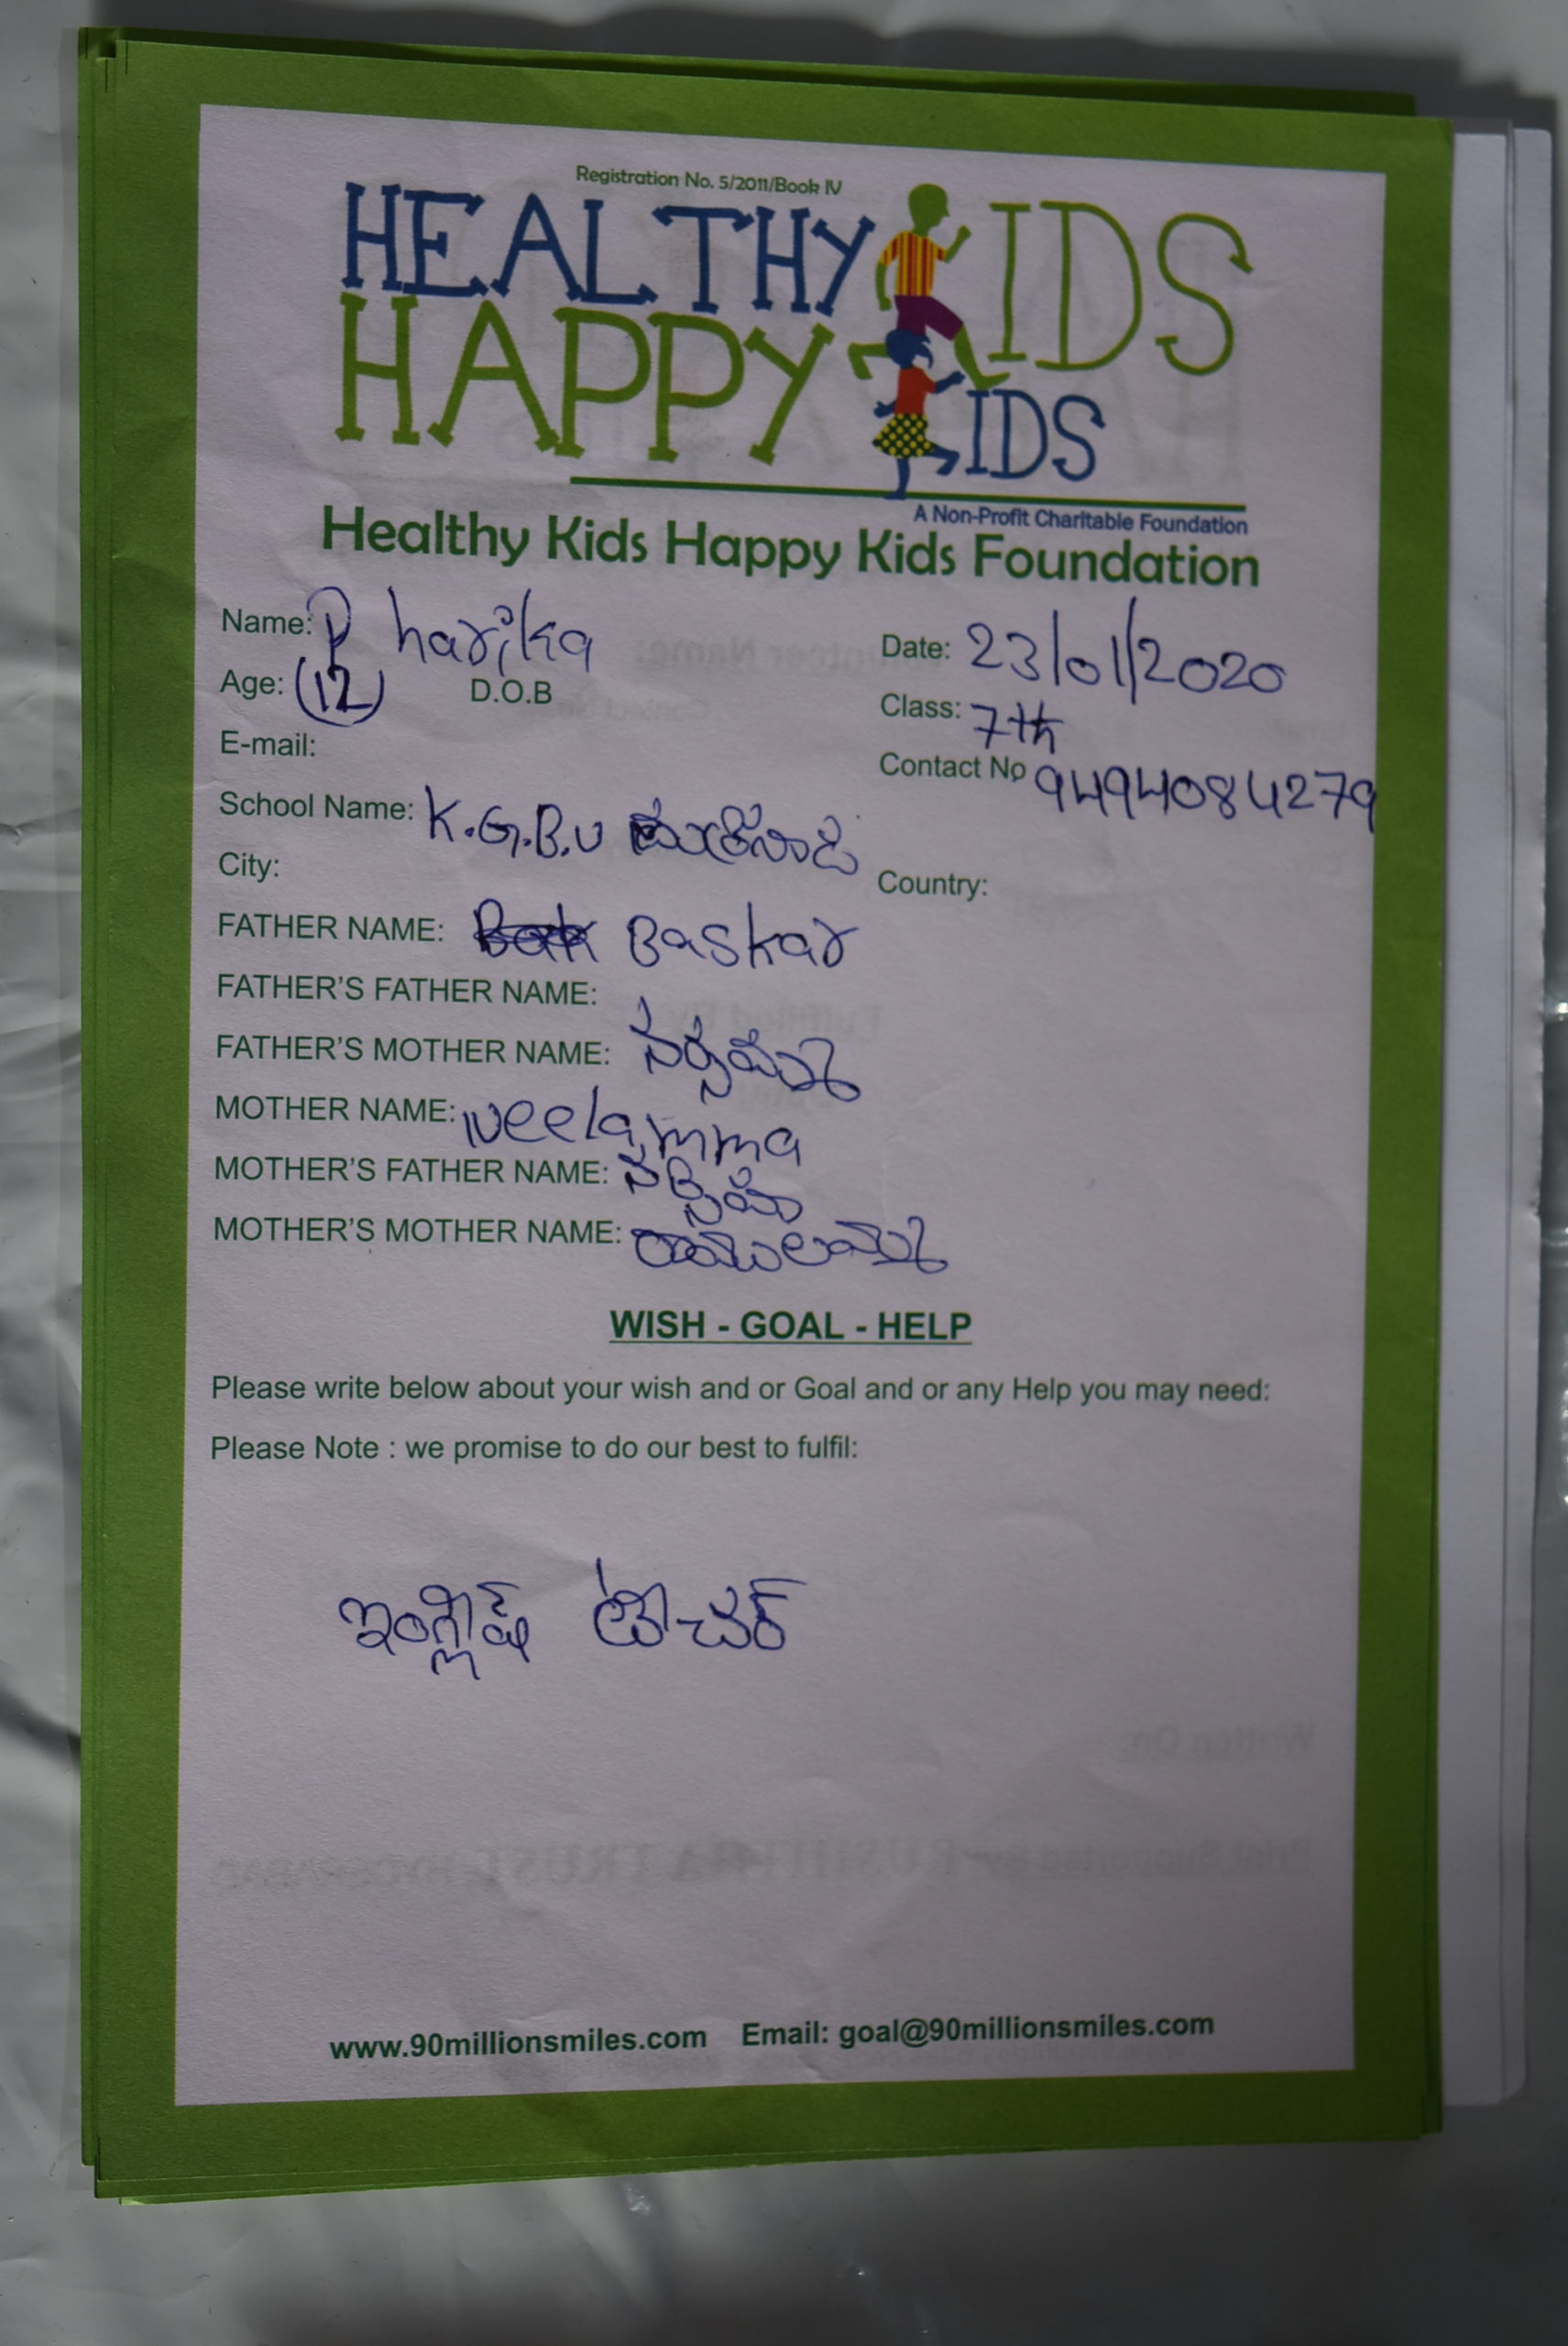 Registration No. 5/2011/Book IV
HEALTHY KIDS
HAPPY KIDS
A Non-Profit Charitable Foundation
Healthy Kids Happy Kids Foundation
Name: P harika Date: 23/01/2020
Age: (12) D.O.B Class: 7th
E-mail: Contact No 9494084279
School Name: K.G.B.V
City: Country:
FATHER NAME: Baskar
FATHER'S FATHER NAME:
FATHER'S MOTHER NAME: నర్సమ్మ
MOTHER NAME: Neelamma
MOTHER'S FATHER NAME:
MOTHER'S MOTHER NAME: రాములమ్మ
WISH - GOAL - HELP
Please write below about your wish and or Goal and or any Help you may need:
Please Note : we promise to do our best to fulfil:
ఇంగ్లీష్ టీచర్
www.90millionsmiles.com Email: goal@90millionsmiles.com